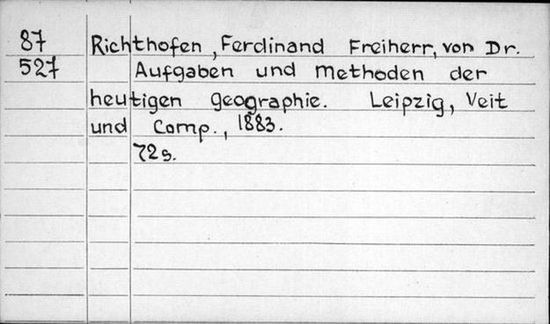 87 Richthofen, Ferdinand Freiherr, von Dr.
527 Aufgaben und Methoden der
heutigen geographie. Leipzig, Veit
und Comp., 1883.
72s.